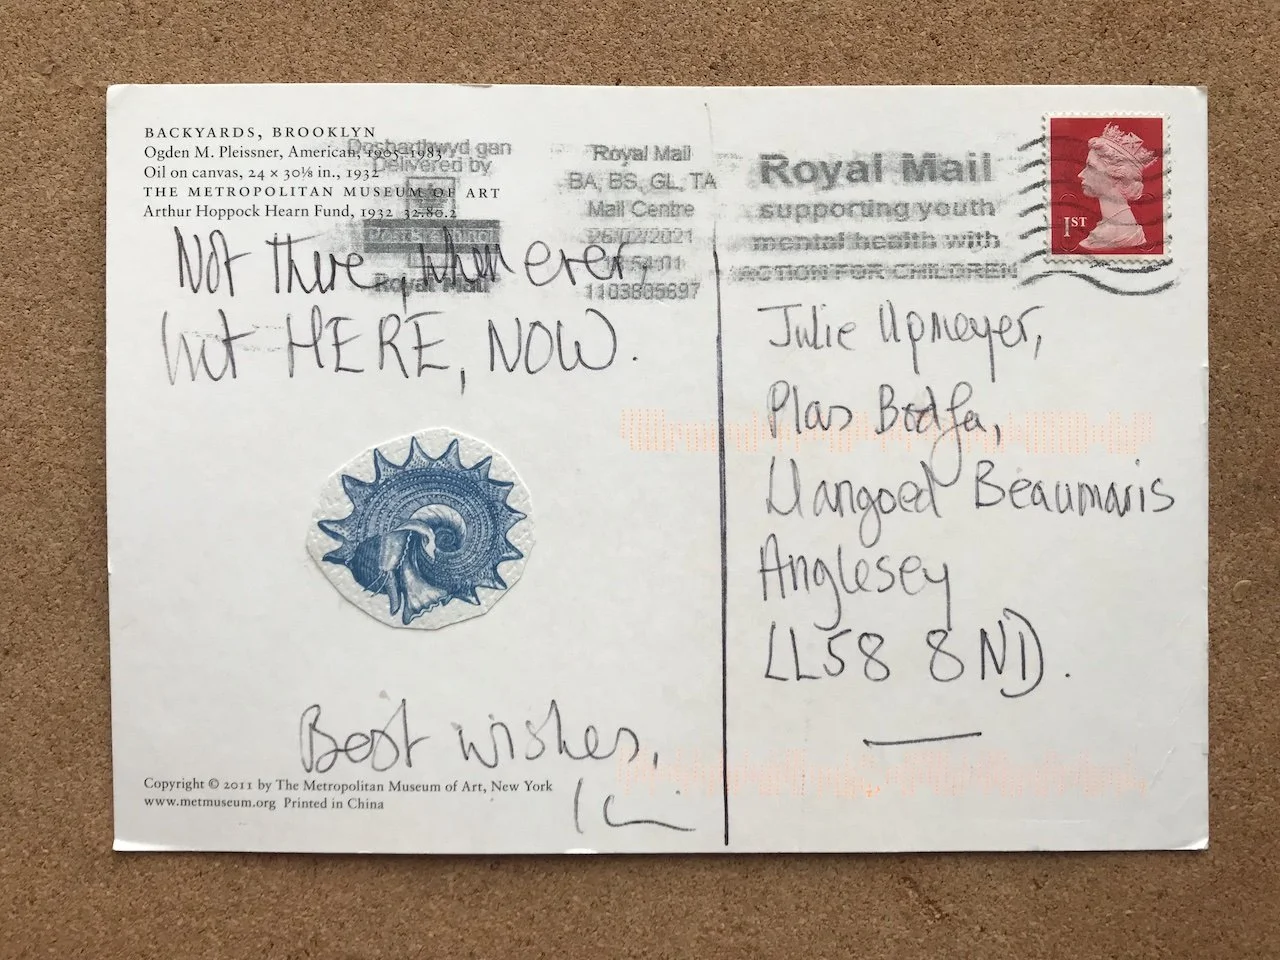 BACKYARDS, BROOKLYN
Ogden M. Pleissner, American, 1905–1983
Oil on canvas, 24 × 30⅛ in., 1932
THE METROPOLITAN MUSEUM OF ART
Arthur Hoppock Hearn Fund, 1932 32.80.2
Dosbarthwyd gan
Delivered by
Royal Mail
Royal Mail
BA, BS, GL, TA
Mail Centre
26/02/2021
1103805697
Royal Mail
supporting youth
mental health with
ACTION FOR CHILDREN
1ST
Not there, whenever,
but HERE, NOW.
Best wishes,
Copyright © 2011 by The Metropolitan Museum of Art, New York
www.metmuseum.org Printed in China
Julie Upmeyer,
Plas Bodfa,
Llangoed Beaumaris
Anglesey
LL58 8ND.